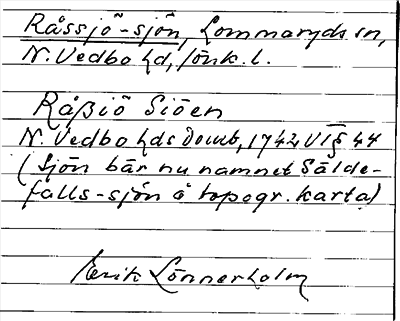 Råssjö-sjön, Lommaryds sn,
N. Vedbo hd, Jönk. l.
Råßiö Siöen
N. Vedbo hds domb, 1742 VI § 44
(Sjön bär nu namnet Sälde-
falls-sjön å topogr. karta)
Erik Lönnerholm